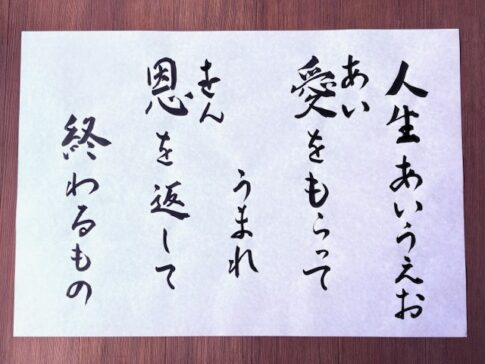 人生あいうえお
あい
愛をもらって
うまれ
をん
恩を返して
終わるもの